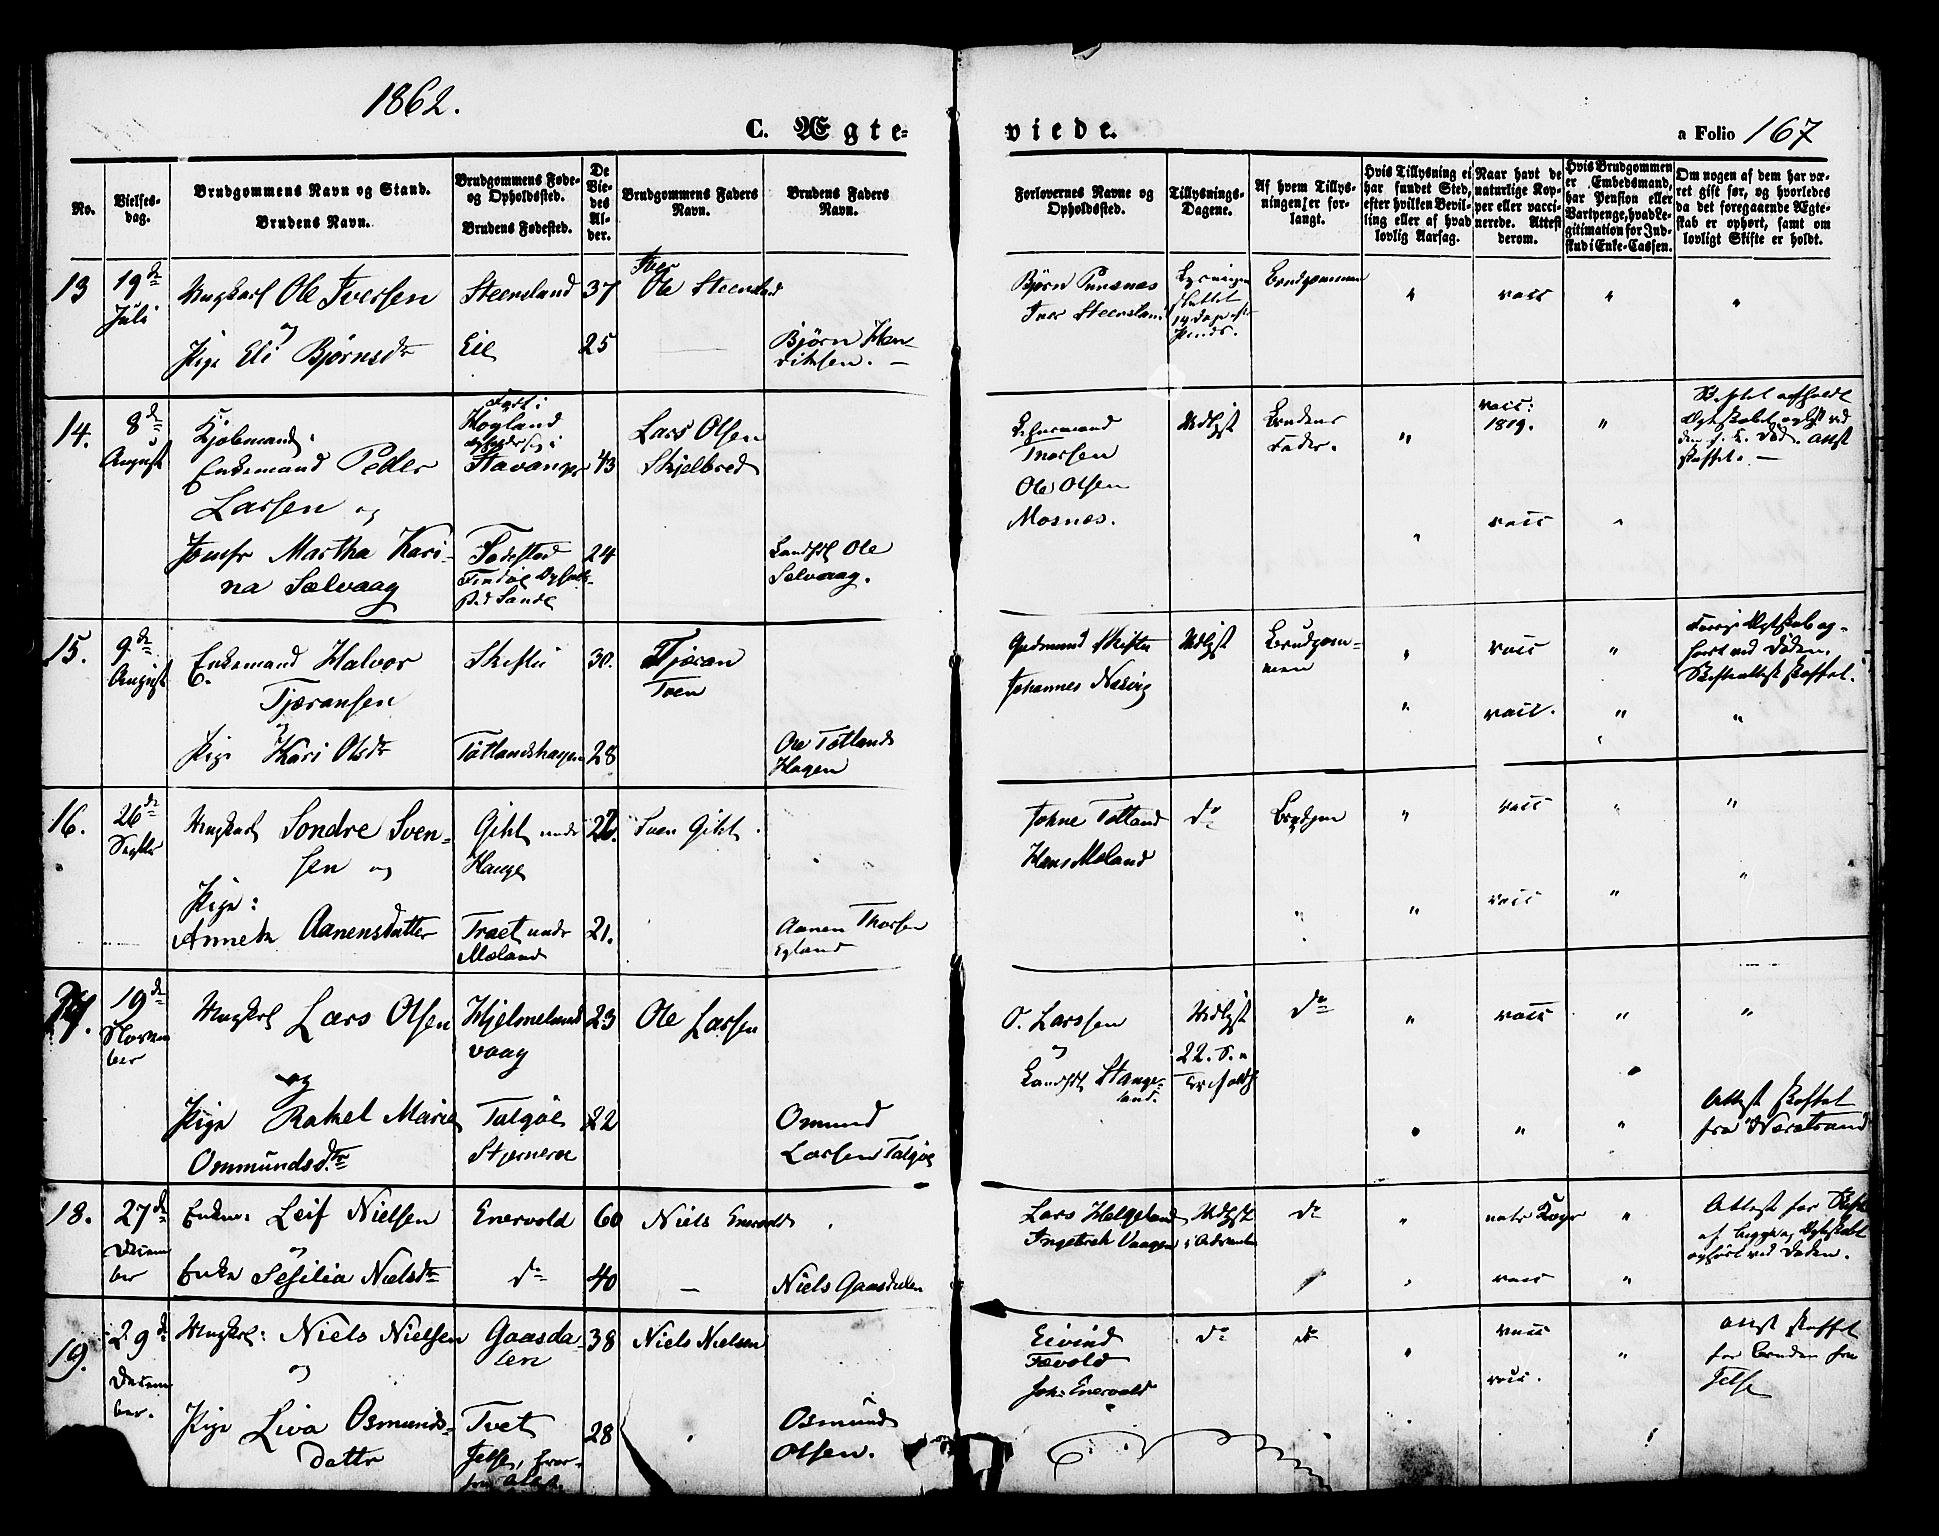 1862.
C. Ægte-
viede.
a Folio 167
No.
Vielses-
dag.
Brudgommens Navn og Stand.
Brudens Navn.
Brudgommens Føde-
og Opholdssted.
Brudens Fødested.
De
Vie-
des
Al-
der.
Brudgommens Faders
Navn.
Brudens Faders
Navn.
Forlovernes Navne og
Opholdssted.
Tillysnings-
Dagene.
Af hvem Tillys-
ningen er for-
langt.
Hvis Tillysning ei
har fundet Sted,
efter hvilken Bevil-
ling eller af hvad
lovlig Aarsag.
Naar havt de
naturlige Kop-
per eller vacci-
nerede. Attest
derom.
Hvis Brudgommen
er Embedsmand,
har Pension eller
Vartpenge, hvad Le-
gitimation for Ind-
skud i Enke-Cassen.
Om nogen af dem har væ-
ret gift før, og hvorledes
da det foregaaende Ægte-
skab er ophørt, samt om
lovligt Skifte er holdt.
13
19de
Juli
Ungkarl Ole Iversen
og
Pige Eli Bjørnsdr
Steensland
Eie
37
25
Iver
Ole Steensland
Bjørn Hen-
diksen.
Bjørn Punsnes
Iver Steensland
Brudgommen
" vacc " "
14.
8de
August
Kjøbmand
Enkemand Peder
Larsen og
Jomfr Martha Kari-
na Sælvaag
Født i
Høgland
Stavanger
Fødested
Findøe
Sande
43
24
Lars Olsen
Skjelbred
Ole
Selvaag.
Thorsen
Ole Olsen
Mosnes.
Udlyst
Brudens
Fader.
"
vacc:
1819.
"
" vacc "
15.
9de
August
Enkemand Halvor
Tjæransen
og
Pige Kari Olsdr
Skiftu
Tøtlandshagen
30.
28
Tjæran
Tven
Ole Tøtlands
Hagen
Gudmund Skiftu
Johannes Nesvig
Udlyst
Brudgom-
men
" vacc "
" vacc. " "
Forrige Ægteskab op-
hørt ved Døden.
16.
26de
Septbr
Ungkarl Sondre Sven-
sen og
Pige:
Anneta Aanensdatter
Gilt under
Hauge
Træet under
Meland
21.
Sven Gilt
Aanen Thorsen
Egland
Johne Tøtland
Hans Meland
do
Brudgom
" vacc " "
" vacc " "
17.
19de
Novem
ber
Ungkarl Lars Olsen
og
Pige Rakel Marie
Ommundsdtr
Hjelmeland
vaag
Talgøe
Stjernerøe
23
22
Ole Larsen
Omund
Larsen Talgøe
O. Larssen
og
Stange-
land.
Udlyst
22. S. e
Trefoldh
do
" vacc " "
" "
Attest skaffet
fra Nærstrand
18.
27de
Decem
ber
Enkem: Leif Nielsen
og
Enke Sesilia Nielsdr
Enervold
do
60
40
Niels Enervold
Niels Gaasdalen
Lars Helgeland
Ingebret Vaagen
Udlyst
i Advent
do
" natr Kopr "
" vacc "
Attest for Skifte
af begge og Ægteskabet
ophørt ved Døden.
19.
29de
Decem
ber.
Ungkarl: Niels Nielsen
og
Pige Liva Osmunds-
datter
Gaasda-
len
Tvet
Jelse,
38
28
Niels Nielsen
Osmund
Olsen.
Eivind
Tøvold
Joh: Enervold
do
do
" vacc "
vacc.
Attest skaffet
for Bruden fra
Jelse